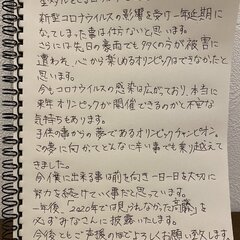 新型コロナウイルスの影響を受け一年延期に
なってしまった事は仕方ないと思います。
さらには先日の豪雨でも多くの方が被害に
遭われ、心から楽しめるオリンピックはできなかったと
思います。
今もコロナウイルスの感染は広がっており、本当に
来年オリンピックが開催できるのかと不安な
気持ちもあります。
子供の事からの夢であるオリンピックチャンピオン。
この夢に向かってどんなに辛い事でも乗り越えて
きました。
今僕に出来る事は前を向き一日一日を大切に
努力を続けていく事だと思っています。
一年後、「2020年では見られなかった
を
必ずみなさんに披露いたします。
今後ともご声援のほどよろしくお願い致します。